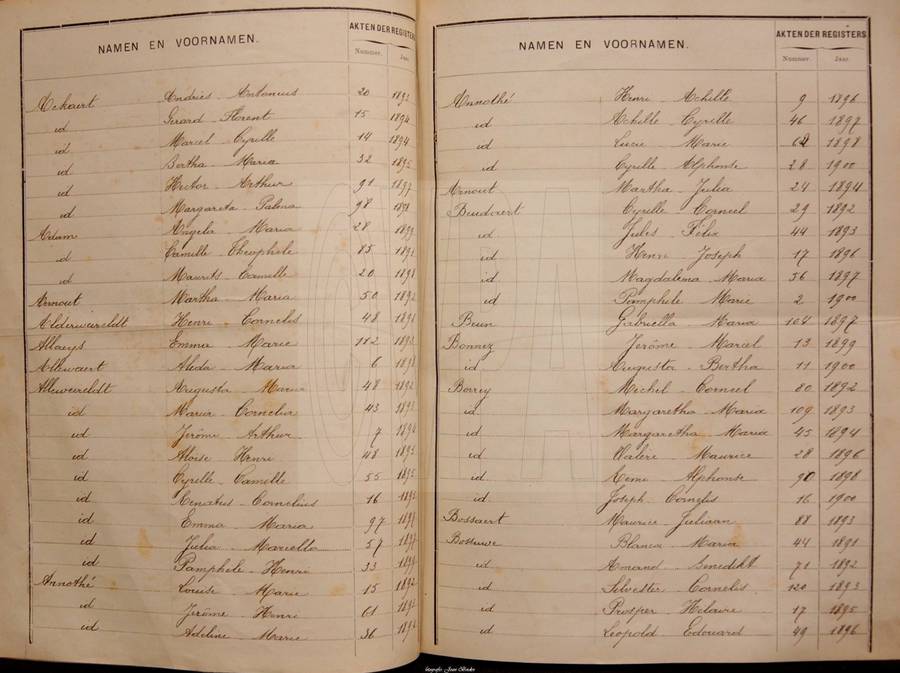 NAMEN EN VOORNAMEN.
AKTEN DER REGISTERS
Nummer. Jaar.
Ackaert Andries Antonius 20 1892
id Gerard Florent 15 1894
id Marcel Cyrille 14 1894
id Bertha Maria 32 1895
id Hector Arthur 91 1897
id Margareta Palma 98 1898
Adam Angela Maria 28
id Camille Theophile 85
id Maurits Camille 20 1898
Armout Martha Maria 50 1892
Alderweireldt Henri Cornelis 48 1891
Allaeys Emma Marie 112
Allewaert Alida Maria 6
Alleweireldt Augusta Maria 48 1892
id Marie Cornelia 43
id Jerôme Arthur 7
id Aloise Henri 48 1895
id Cyrille Camille 55 1895
id Renatus Cornelius 16
id Emma Maria 97 1897
id Julia Marcella 57 1897
id Pamphile Henri 33 1899
Annothé Louise Marie 15 1892
id Jerôme Henri 61
id Adeline Marie 36
NAMEN EN VOORNAMEN.
AKTEN DER REGISTERS
Nummer. Jaar.
Annothé Henri Achille 9 1896
id Achille Cyrille 46 1897
id Lucie Marie 1898
id Cyrille Alphonse 28 1900
Arnout Martha Julia 24 1894
Beudaert Cyrille Corneel 29 1892
id Jules Felix 44 1893
id Henri Joseph 17 1896
id Magdalena Maria 36 1897
id Pamphile Marie 2 1900
Beun Gabriella Maria 104 1897
Bonnez Jerôme Marcel 13 1899
id Augusta Bertha 11 1900
Borrey Michel Corneel 80 1892
id Margaretha Maria 109 1893
id Margaretha Maria 45 1894
id Valère Maurice 28 1896
id Remi Alphonse 90 1898
id Joseph Cornelis 16 1900
Bossaert Maurice Juliaan 88 1893
Bossuwe Blanca Maria 44 1891
id Amand Benedikt 71 1892
id Silvester Cornelis 120 1893
id Prosper Hilaire 17 1895
id Leopold Edouard 49 1896